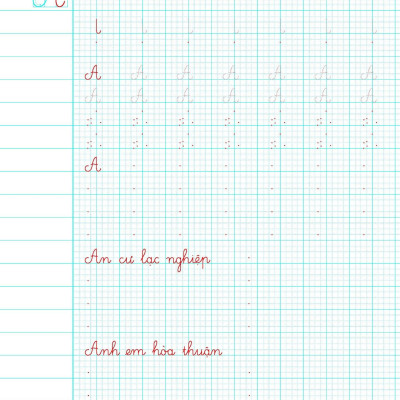 A A A A A A A
A A A A A A A
A
An cư lạc nghiệp
Anh em hòa thuận